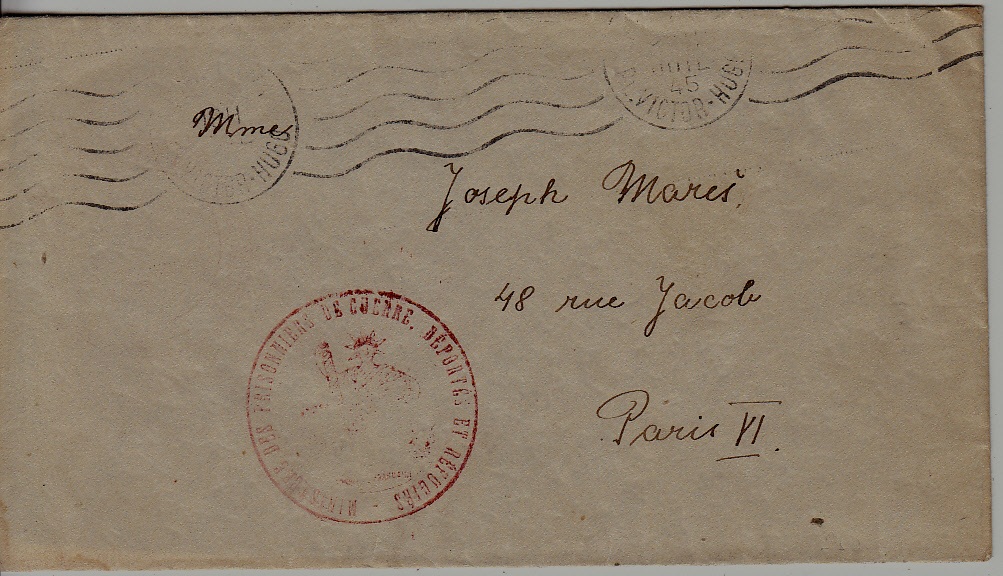 45
VICTOR-HUGO
Mme
VICTOR-HUGO
Joseph Mares
48 rue Jacob
Paris VI.
MINISTÈRE DES PRISONNIERS DE GUERRE, DÉPORTÉS ET RÉFUGIÉS -